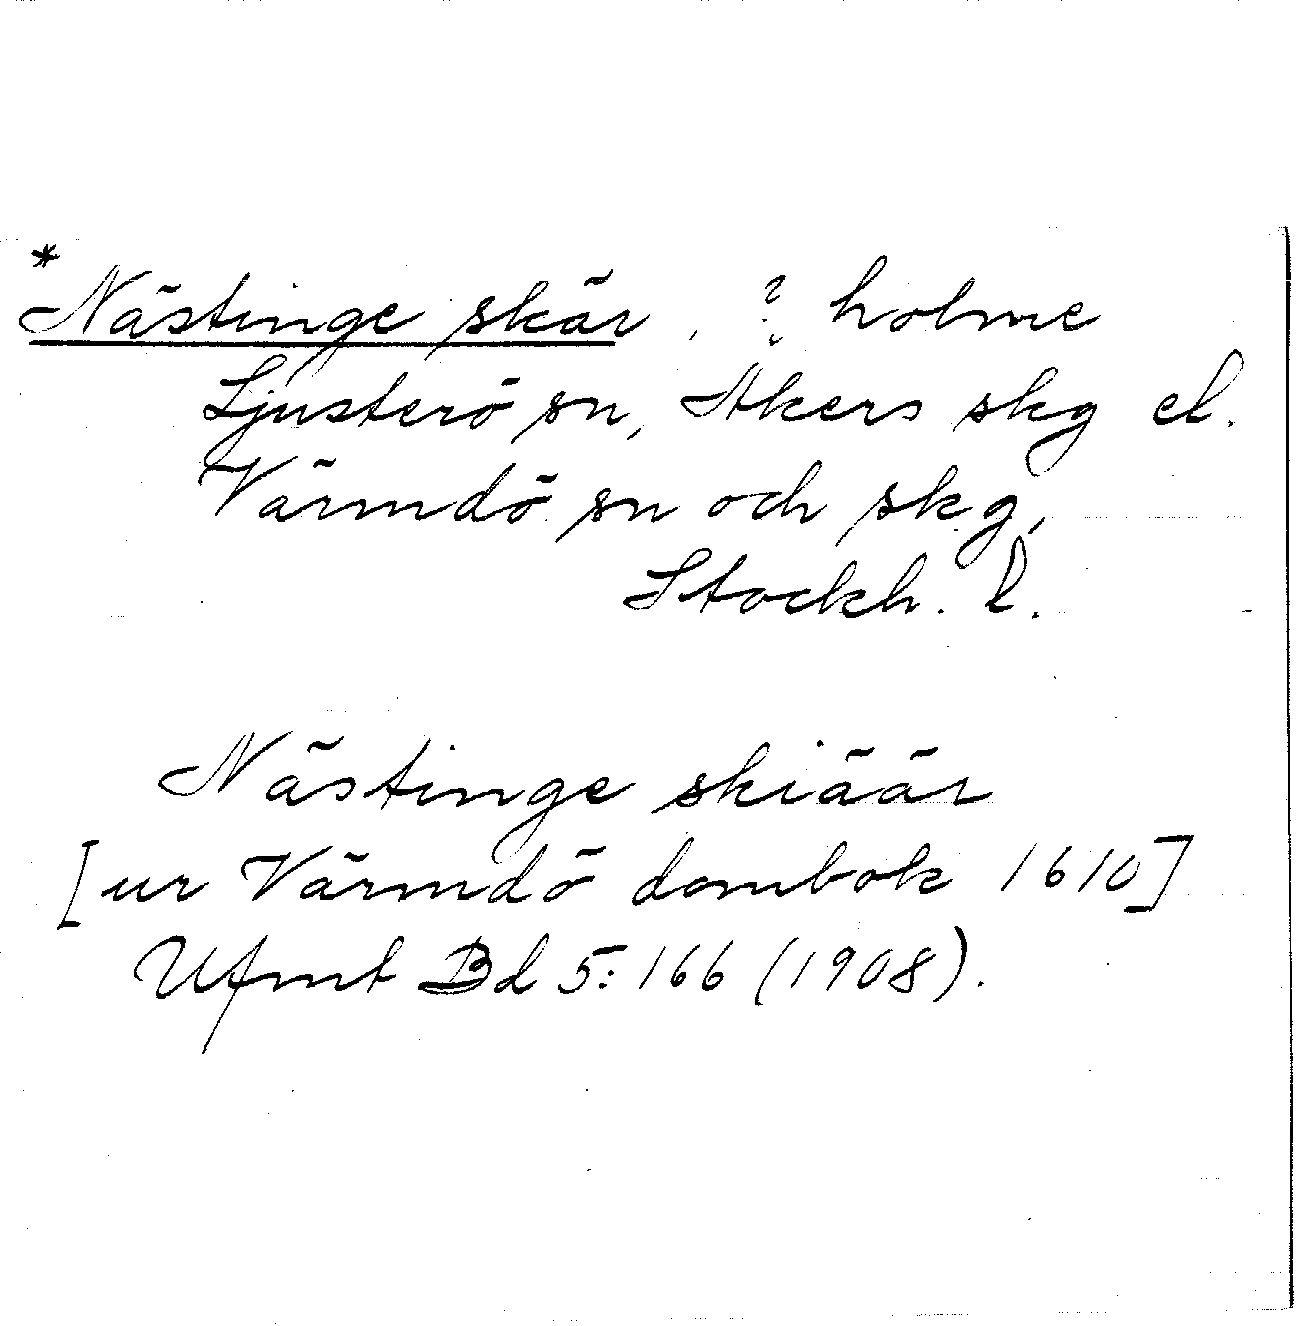 *Nästinge skär, ? holme
Ljusterö sn, Åkers skg el.
Värmdö sn och skg,
Stockh. l.
Nästinge skiäär
[ur Värmdö dombok 1610]
Ufmt Bd 5: 166 (1908).